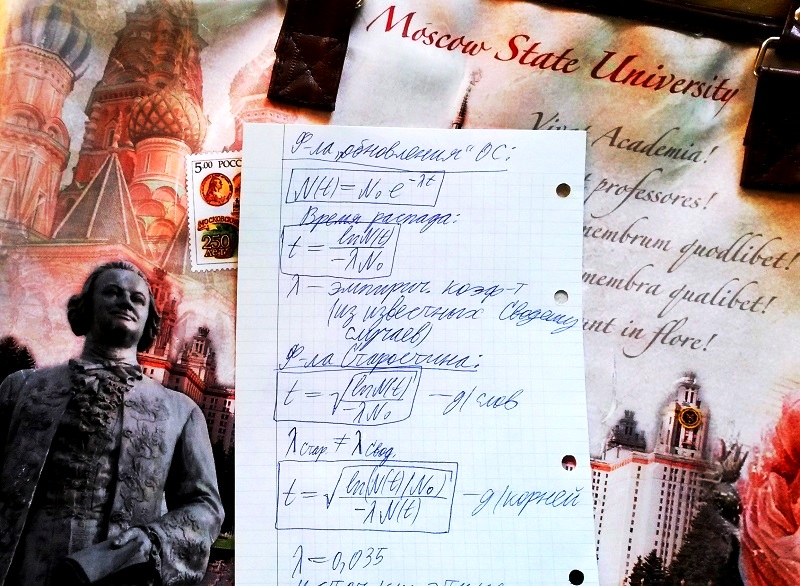 Moscow State University
Vivat Academia!
t professores!
membrum quodlibet!
membra qualibet!
nt in flore!
5.00 РОСС
МОСКОВСКО
250
ЛЕТ
Ф-ла „обновления“ ОС:
N(t) = N₀ e^-λt
Время распада:
t = lnN(t) / -λN₀
λ – эмпирич. коэф-т
(из известных Сводешу
случаев)
Ф-ла Старостина:
t = √(lnN(t) / -λN₀) – д/слов
λстар ≠ λсвод.
t = √(ln(N(t)/N₀) / -λN(t)) – д/корней
λ = 0,035